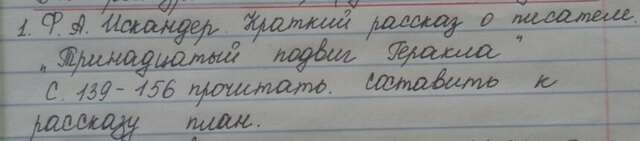 1. Ф. А. Искандер. Краткий рассказ о писателе.
„Тринадцатый подвиг Геракла"
С. 139-156 прочитать. Составить к
рассказу план.